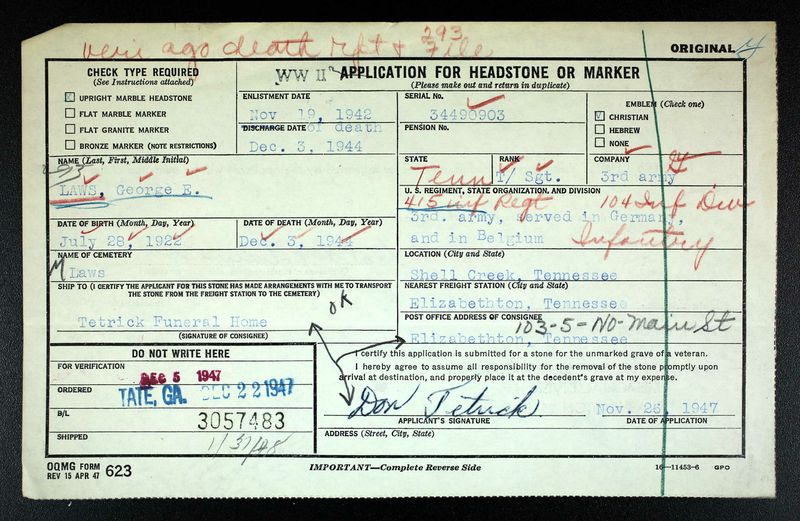 veri ago death rpt & 293 File
ORIGINAL
CHECK TYPE REQUIRED
(See Instructions attached)
UPRIGHT MARBLE HEADSTONE
FLAT MARBLE MARKER
FLAT GRANITE MARKER
BRONZE MARKER (NOTE RESTRICTIONS)
WW II APPLICATION FOR HEADSTONE OR MARKER
(Please make out and return in duplicate)
ENLISTMENT DATE
Nov 19, 1942
DISCHARGE DATE of death
Dec. 3, 1944
SERIAL No.
34490903
PENSION No.
EMBLEM (Check one)
CHRISTIAN
HEBREW
NONE
NAME (Last, First, Middle Initial)
LAWS, George E.
STATE
Tenn
RANK
T/ Sgt.
COMPANY
3rd army
U. S. REGIMENT, STATE ORGANIZATION, AND DIVISION
415 Inf Regt 104 Inf Div
3rd. army, served in Germany,
and in Belgium Infantry
DATE OF BIRTH (Month, Day, Year)
July 28, 1922
DATE OF DEATH (Month, Day, Year)
Dec. 3, 1944
NAME OF CEMETERY
Laws
LOCATION (City and State)
Shell Creek, Tennessee
SHIP TO (I CERTIFY THE APPLICANT FOR THIS STONE HAS MADE ARRANGEMENTS WITH ME TO TRANSPORT
THE STONE FROM THE FREIGHT STATION TO THE CEMETERY)
OK
Tetrick Funeral Home
(SIGNATURE OF CONSIGNEE)
NEAREST FREIGHT STATION (City and State)
Elizabethton, Tennessee
POST OFFICE ADDRESS OF CONSIGNEE
103-5-No-Main St
Elizabethton, Tennessee
DO NOT WRITE HERE
FOR VERIFICATION
DEC 5 1947
ORDERED
TATE, GA. DEC 22 1947
B/L
3057483
SHIPPED
1/31/48
I certify this application is submitted for a stone for the unmarked grave of a veteran.
I hereby agree to assume all responsibility for the removal of the stone promptly upon
arrival at destination, and properly place it at the decedent's grave at my expense.
Don Tetrick
Nov. 26, 1947
APPLICANT'S SIGNATURE
DATE OF APPLICATION
ADDRESS (Street, City, State)
OQMG FORM
REV 15 APR 47 623
IMPORTANT—Complete Reverse Side
16—11453-6 GPO